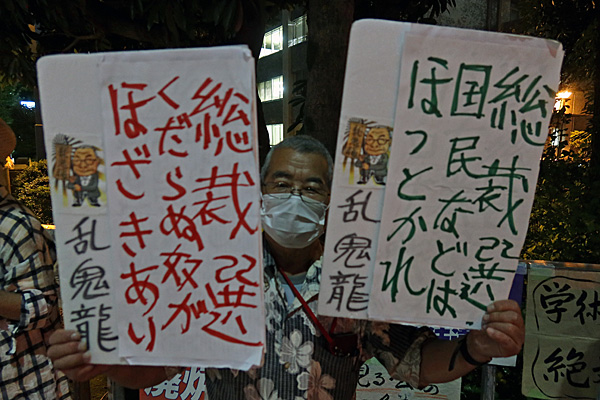 総裁選
国民などは
ほっとかれ
乱鬼龍
総裁選
くだらぬ夜が
ほざきあり
乱鬼龍
学術
絶